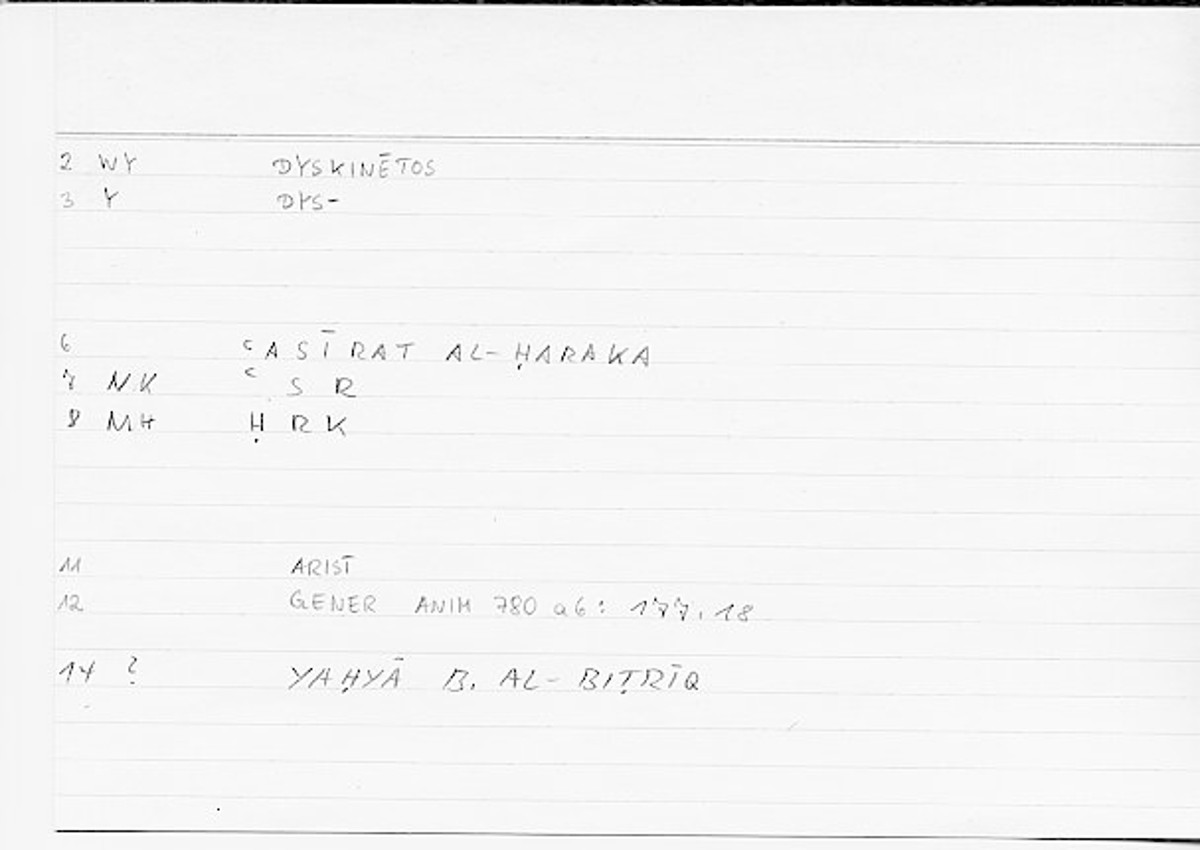 2 WY DYSKINĒTOS
3 Y DYS-
6 ʿASĪRAT AL-ḤARAKA
7 NK ʿSR
8 MH ḤRK
11 ARIST
12 GENER ANIM 780 a6: 177,18
14 ? YAḤYĀ B. AL-BIṬRĪQ